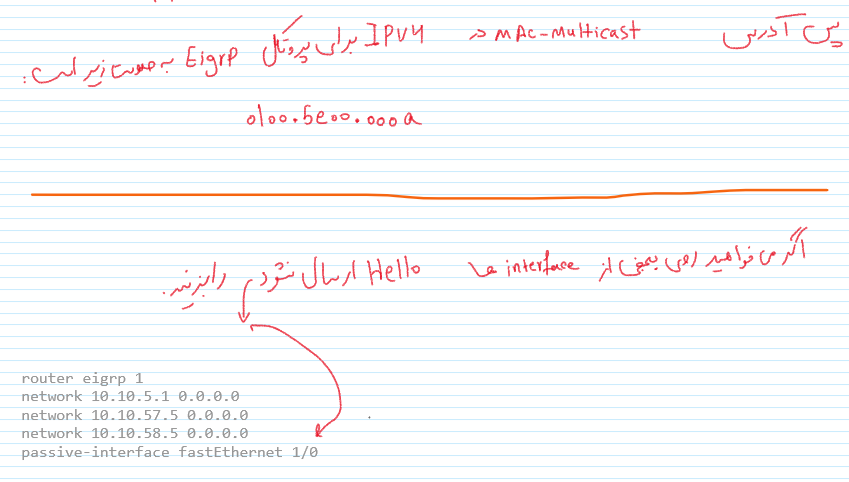 پس آدرس MAC-Multicast در IPV4 برای پروتکل Eigrp به صورت زیر است:
0100.5e00.000a
اگر می خواهید روی بعضی از interface ها Hello ارسال نشود را بزنید.
router eigrp 1
network 10.10.5.1 0.0.0.0
network 10.10.57.5 0.0.0.0
network 10.10.58.5 0.0.0.0
passive-interface fastEthernet 1/0